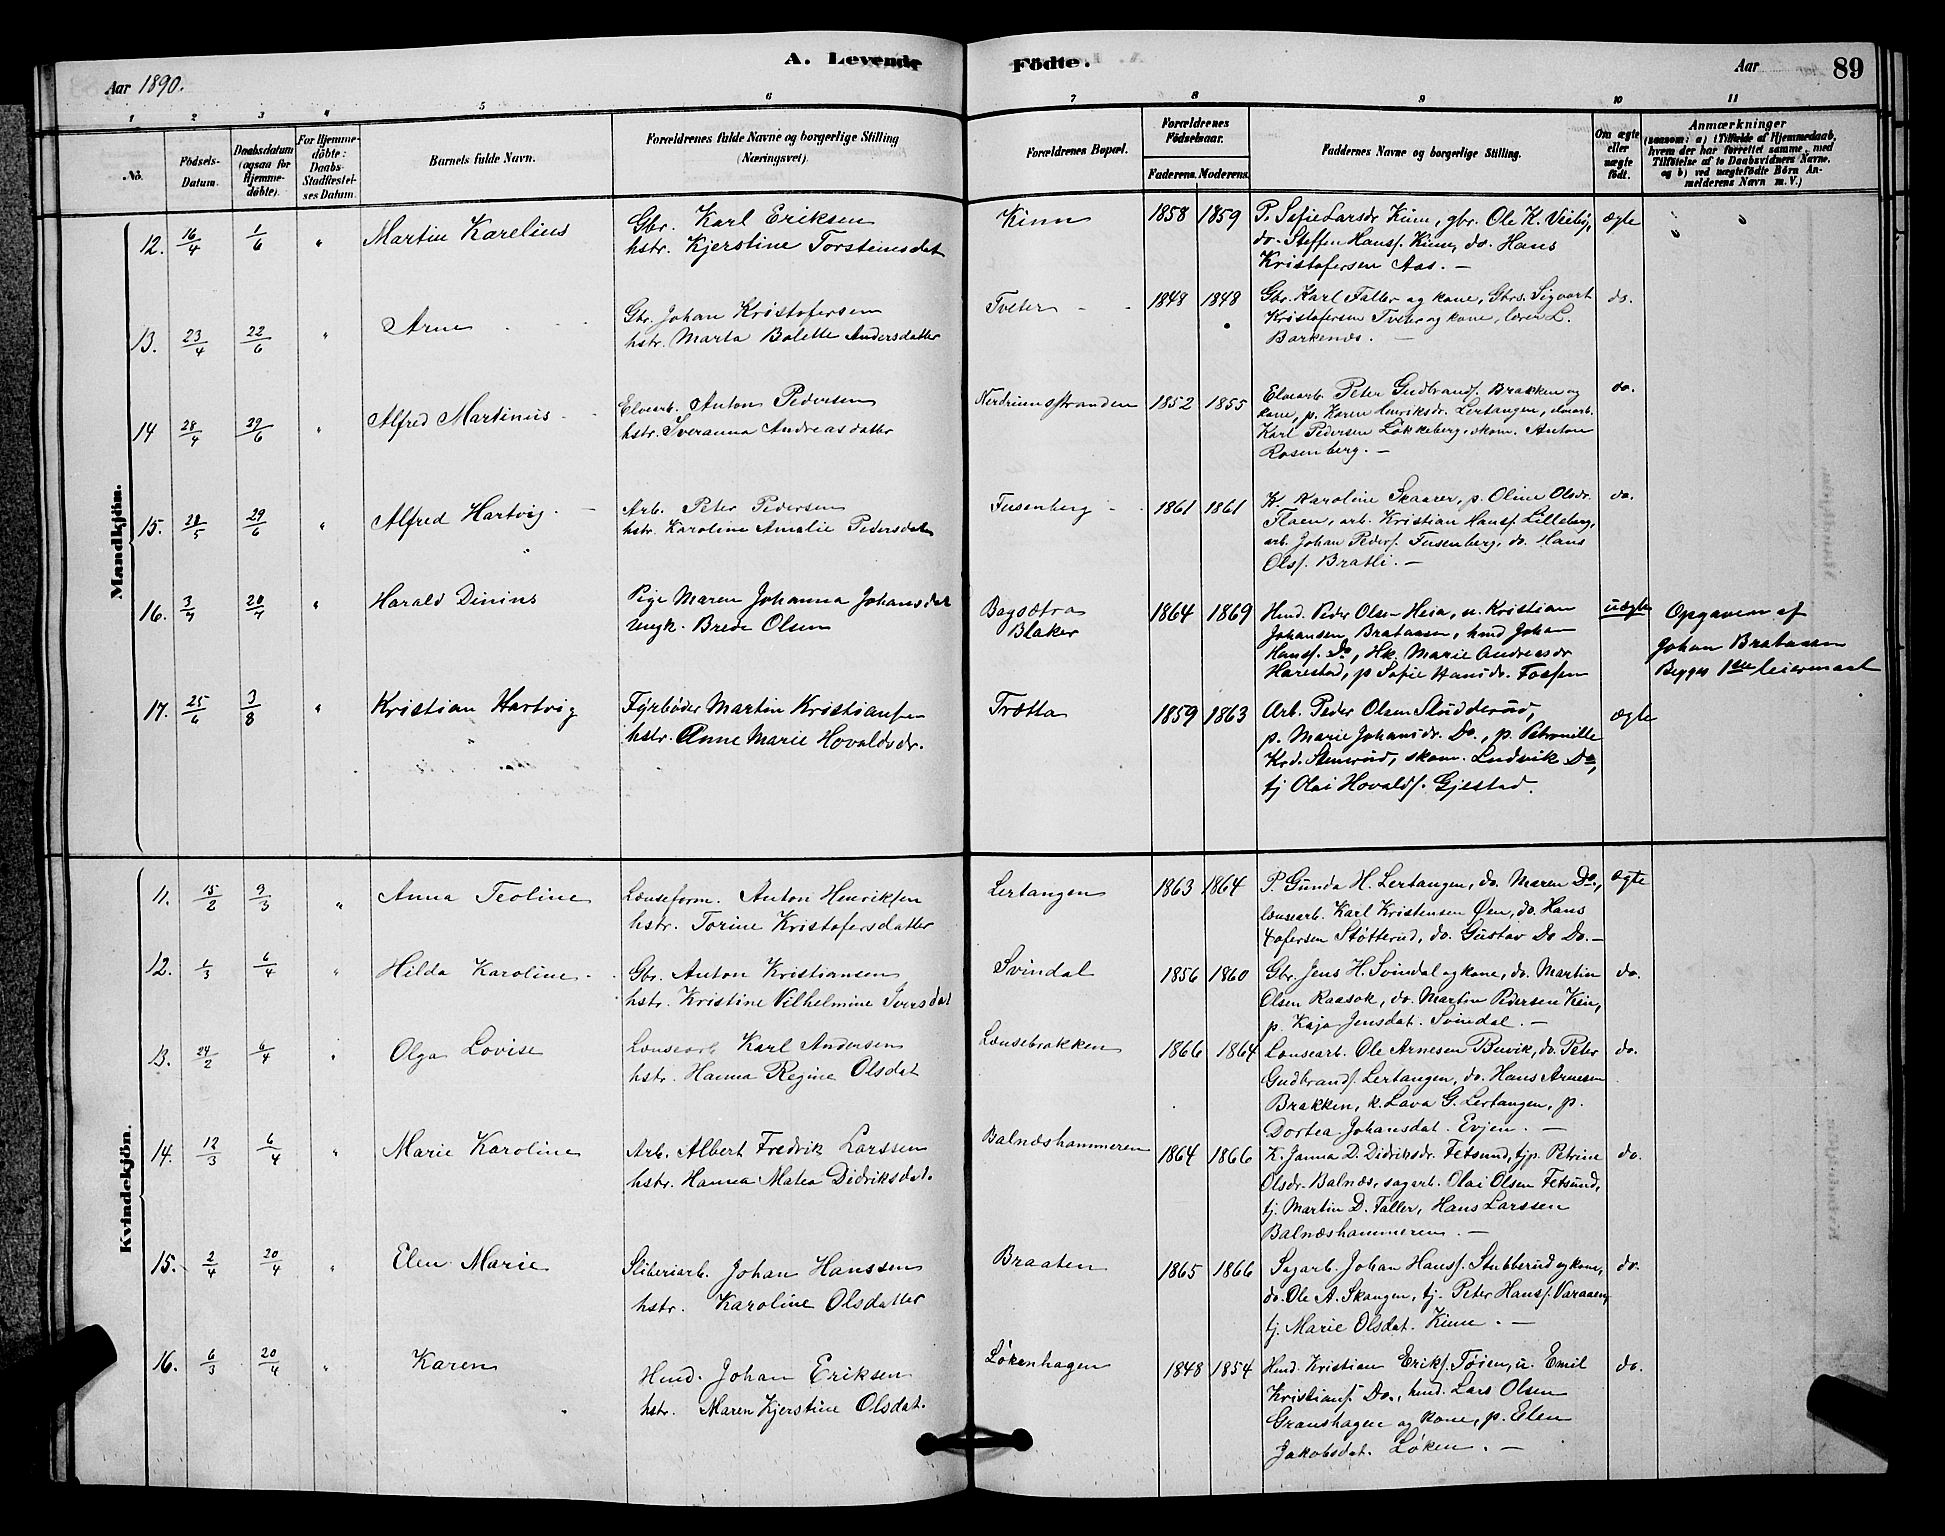 Aar 1890.
A. Levende
Födte.
Aar
89
1 2 3 4 5 6 7 8 9 10 11
No.
Födsels-Datum.
Daabsdatum (ogsaa for Hjemme-döbte).
For Hjemme-döbte: Daabs-Stadfæstelses Datum.
Barnets fulde Navn.
Forældrenes fulde Navne og borgerlige Stilling (Næringsvei).
Forældrenes Bopæl.
Forældrenes Födselsaar.
Faderens. Moderens.
Faddernes Navne og borgerlige Stilling.
Om ægte eller uægte födt.
Anmærkninger
(saasom: a) i Tilfælde af Hjemmedaab, hvem der har forrettet samme, med Tilföielse af to Daabsvidners Navne, og b) ved uægtefödte Börn Anmelderens Navn m. V.)
Mandkjön.
12. 16/4 1/6 " Martin Karelius
Gbr. Karl Eriksen
hstr. Kjerstine Torsteinsdat
Kinn 1858 1859
P. Sofie Larsdr Kinn, gbr. Ole K. Viebÿ,
do. Steffen Hansf. Kinn, do. Hans
Kristofersen Aas. —
ægte " "
13. 23/4 22/6 " Arne
Gbr. Johan Kristofersen
hstr. Marta Bolette Andersdatter
Tveter 1848 1848
Gbr. Karl Faller og kone, Gbrs. Sigvart
Kristofersen Tveter og kone, L.
Barkenæs. —
do.
14 28/4 29/6 " Alfred Martinius
Elvearb. Anton Pedersen
hstr. Sveranna Andreasdatter
Nerdrumsstranden 1852 1855
Elvearb. Peter Gudbrandf. Brakken og
kone, p. Karen Henriksdr. Lertangen, elvearb.
Karl Pedersen Løkkeberg, skom. Anton
Rosenberg. —
do.
15. 28/5 29/6 " Alfred Hartvig
Arb. Peter Pedersen
hstr. Karoline Amalie Pedersdat
Fusenberg 1861 1861
K. Karoline Skaarer, p. Oline Olsdr.
Flaen, arb. Kristian Hansf. Lilleberg,
arb. Johan Pedersf. Fusenberg, do. Hans
Olsf. Bratli. —
do.
16. 3/4 20/7 " Harald Dinius
Pige Maren Johanna Johansdat
Ungk. Brede Olsen
Bagsætra
Blaker 1864 1869
Hmd. Peder Olsen Heia, u. Kristian
Johansen Brataasen, hmd Johan
Hansf. Do, Hk. Marie Andreasdr
Harestad, p Sofie Hansdr. Fossen
uægte
Opgaven af
Johan Brataasen
Begges 1ste leiermaal
17. 25/6 3/8 " Kristian Hartvig
Fÿrbøder Martin Kristiansen
hstr. Anne Marie Hovaldsdr.
Trætta 1859 1863
Arb. Peder Olsen Studderud,
p. Marie Johansdr. Do., p. Petronille
Krd. Stenerud, skom. Ludvik Do,
tj Olai Hovaldsf. Gjestad.
ægte
Kvindekjön.
11. 15/2 9/3 " Anna Teoline
Lænseform. Anton Henriksen
hstr. Torine Kristofersdatter
Lertangen 1863 1864
P. Gunda H. Lertangen, do. Maren Do,
lænsearb. Karl Kristensen Øen, do. Hans
Xofersen Støtterud, do. Gustav Do Do. —
ægte
12. 1/3 6/4 " Hilda Karoline
Gbr. Anton Kristiansen
hstr. Kristine Vilhelmine Iversdat
Svindal 1856 1860
Gbr. Jens H. Svindal og kone, do. Martin
Olsen Raasok, do. Martin Pedersen Kin,
p. Kaja Jensdat. Svindal. —
do.
13. 24/2 6/4 " Olga Lovise
Lænsearb Karl Andersen
hstr. Hanna Regine Olsdat
Lænsebrakken 1866 1864
Lænsearb. Ole Arnesen Buvik, do. Peter
Gudbrandf. Lertangen, do. Hans Arnesen
Brakken, k. Lava G. Lertangen, p.
Dortea Johansdat. Evjen. —
do.
14. 12/3 6/4 " Marie Karoline
Arb. Albert Fredrik Larssen
hstr. Hanna Matea Didriksdat.
Balnæshammeren 1864 1866
K. Janna D. Didriksdr. Fetsund, tjp. Petrine
Olsdr. Balnæs, sagarb. Olai Olsen Fetsund,
tj. Martin D. Faller, Hans Larssen
Balnæshammeren. —
do.
15. 2/4 20/4 " Elen Marie
Sliberiarb. Johan Hanssen
hstr. Karoline Olsdatter
Braaten 1865 1866
Sagarb. Johan Hansf. Stubberud og kone,
do. Ole A. Skangen, tj. Peter Hansf. Varaaen,
tj. Marie Olsdat. Kinn. —
do.
16. 6/3 20/4 " Karen
Hmd. Johan Eriksen
hstr. Maren Kjerstine Olsdat.
Løkenhagen 1848 1854
Hmd. Kristian Eriksf. Tøien, u. Emil
Kristiansf. Do., hmd. Lars Olsen
Granshagen og kone, p. Elen
Jakobsdat. Løken. —
do.